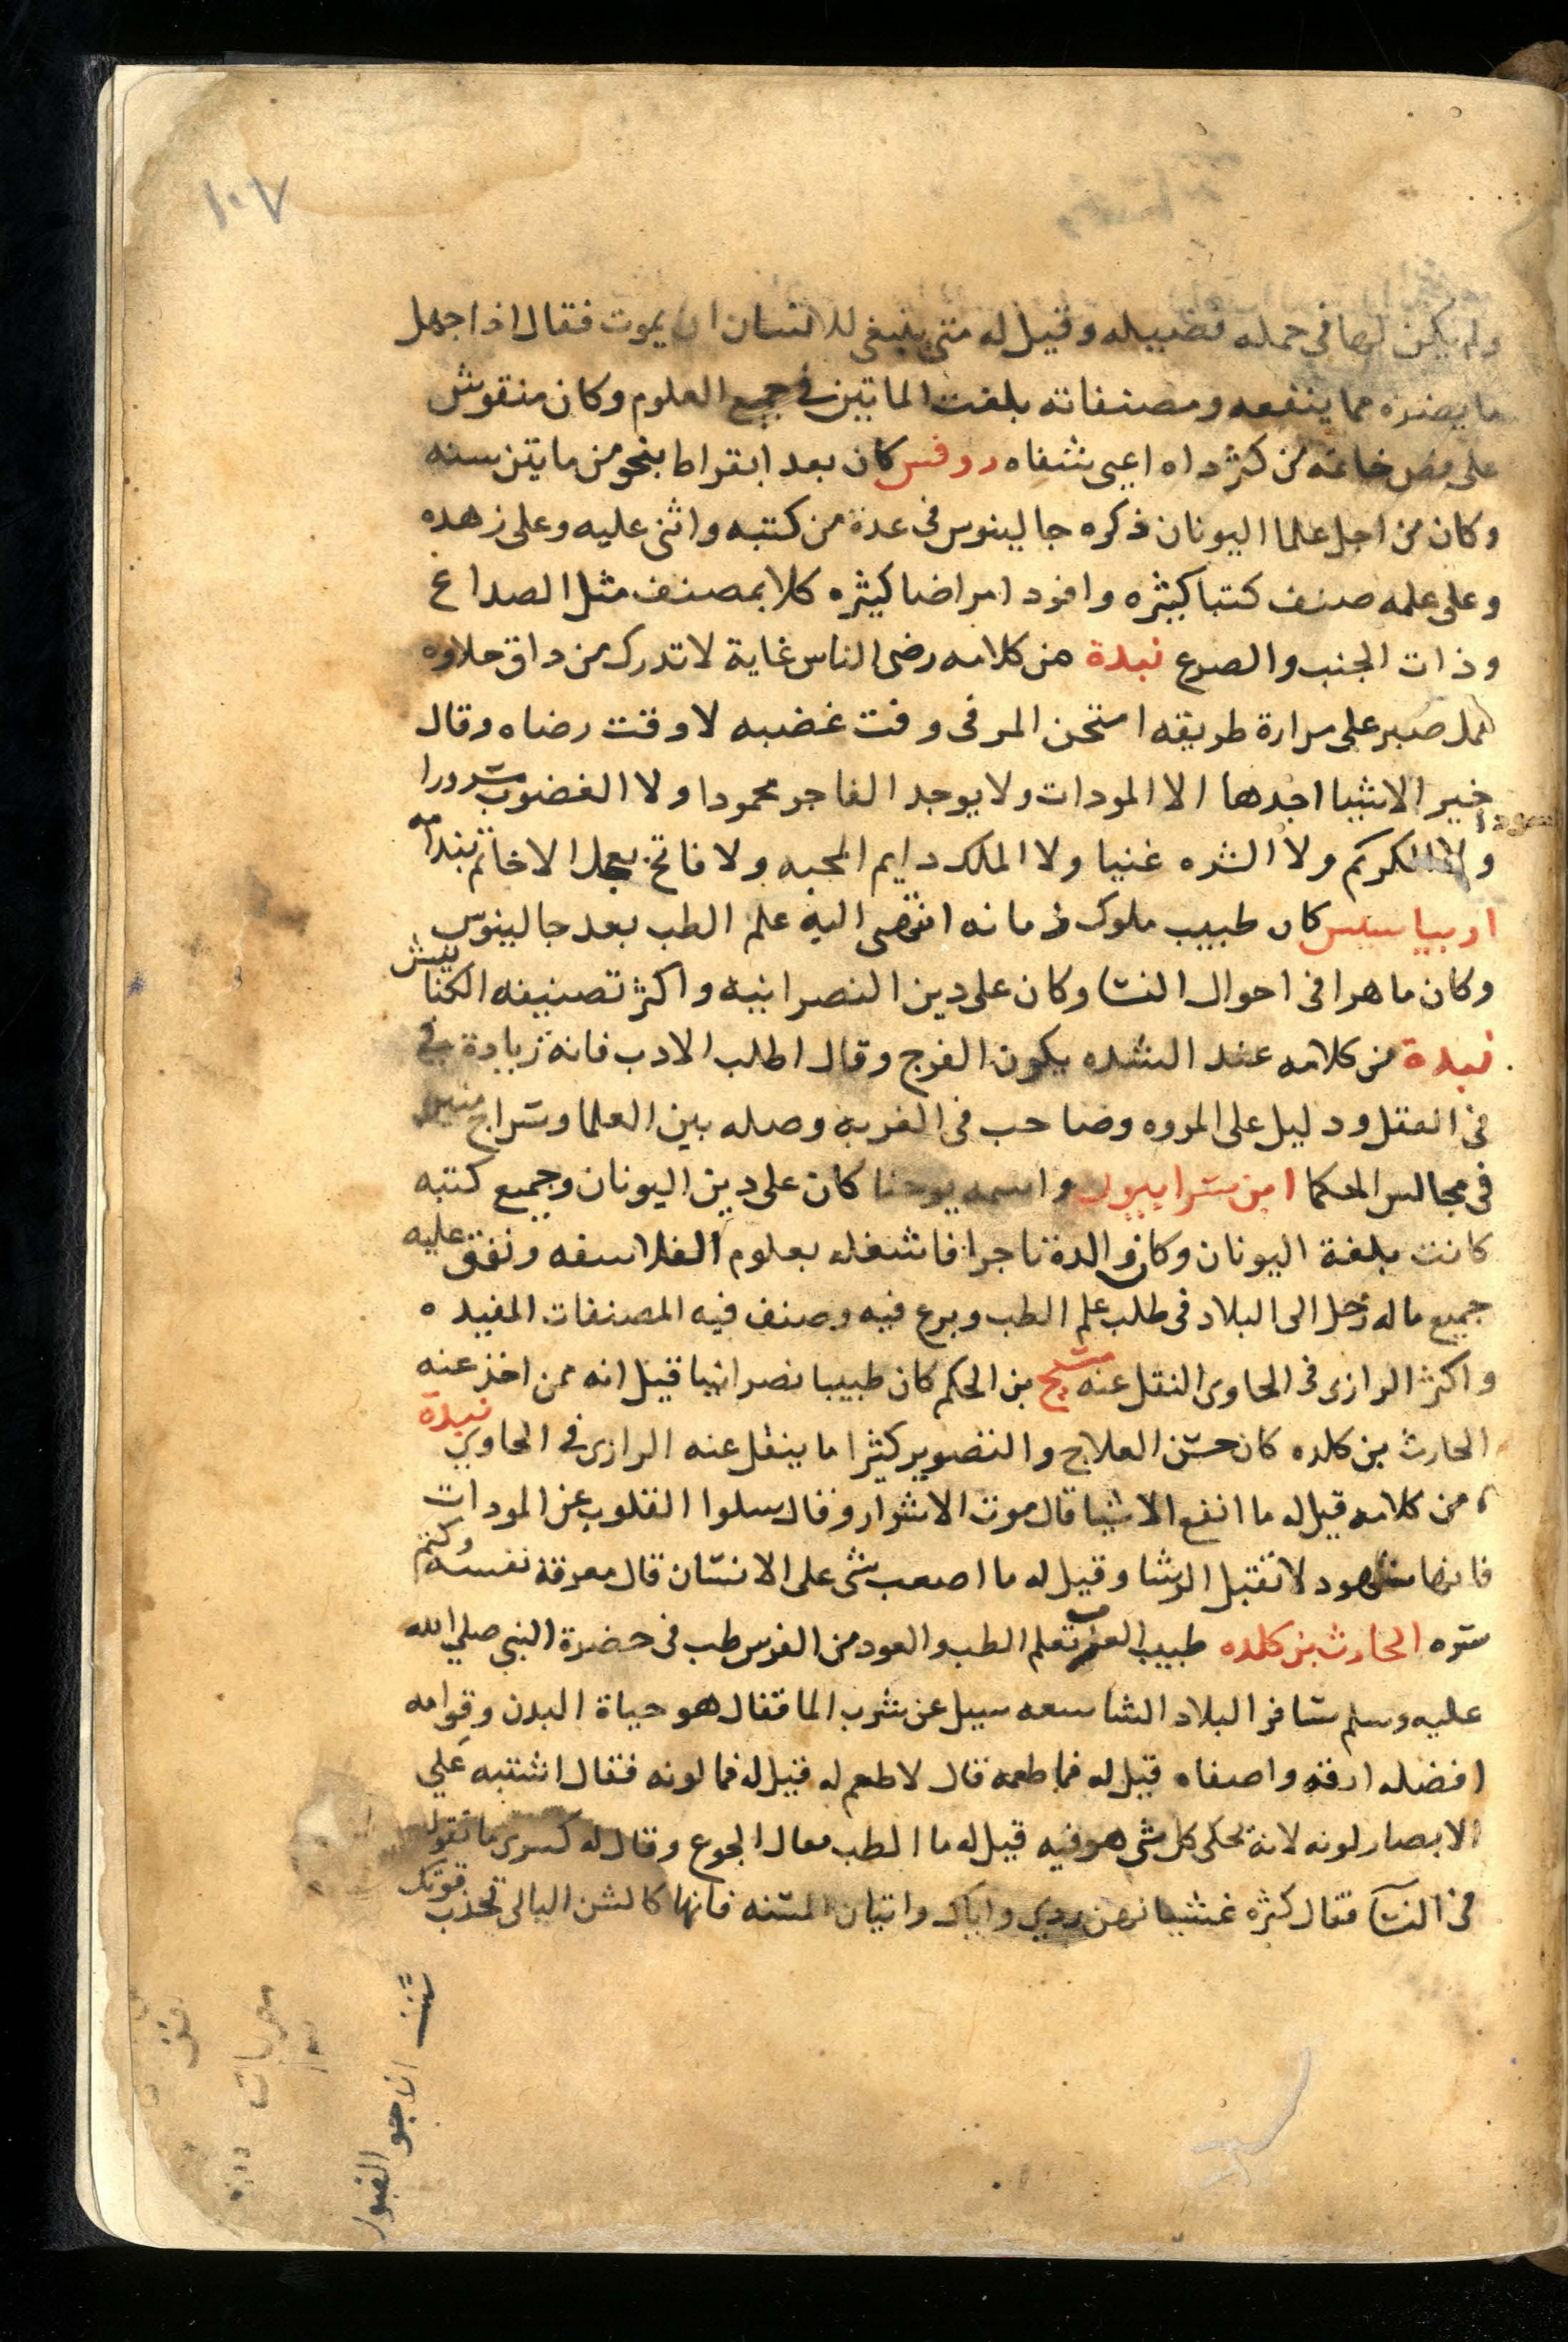 ١٠٧
ولم يكن لها في حمله فضيله وقيل له متى ينبغي للانسان ان يموت فقال اذا جهل
ما يضره مما ينفعه ومصنفاته بلغت الماتين في جميع العلوم وكان منقوش
على فص خاتمه من كثر داه اعيى شفاه روفس كان بعد ابقراط بنحو من مايتن سنه
وكان من اجل علما اليونان ذكره جالينوس في عدة من كتبه واثنى عليه وعلى زهده
وعلى علمه صنف كتبا كثيره وافرد امراضا كثيره كلا بمصنف مثل الصداع
وذات الجنب والصرع نبدة من كلامه رضى الناس غاية لا تدرك من داق حلاوه
عمل صبر على مرارة طريقه امتحن المر في وقت غضبه لا وقت رضاه وقال
خير الاشيا اجدها الا المودات ولا يوجد الفاجر محمودا ولا الغضوب مسرورا
ولا الكريم ولا الشره غنيا ولا الملك دايم المحبه ولا فاتح بعجل الا خاتم بندامه
اريباسيس كان طبيب ملوك زمانه انتهى اليه علم الطب بعد جالينوس
وكان ماهرا في احوال النسا وكان على دين النصرانيه واكثر تصنيفه الكنانيش
نبدة من كلامه عند الشده يكون الفرج وقال اطلب الادب فانه زيادة في
في العقل ودليل على المروه وصاحب في الغربه وصله بين العلما وسراج منير
في مجالس الحكما ابن سرابيون واسمه يوحنا كان على دين اليونان وجميع كتبه
كانت بلغة اليونان وكان والدة تاجرا فاشغله بعلوم الفلاسفه ونفق عليه
جميع ماله رحل الى البلاد في طلب علم الطب وبرع فيه وصنف فيه المصنفات المفيده
واكثر الرازى في الحاوى النقل عنه مسيح بن الحكم كان طبيبا نصرانيا قيل انه ممن اخذ عنه
الحارث بن كلده كان حسن العلاج والتصوير كثيرا ما ينقل عنه الرازى في الحاوي نبدة
من كلامه قيل له ما انفع الاشيا قال موت الاشرار وقال سلوا القلوب عن المودات
فانها شهود لا تقبل الرشا وقيل له ما اصعب شى على الانسان قال معرفة نفسه وكتم
سره الحارث بن كلده طبيب العرب تعلم الطب والعود من الفرس طب في حضرة النبي صلي الله
عليه وسلم سافر البلاد الشاسعه سيل عن شرب الما فقال هو حياة البدن وقوامه
افضله ارقه واصفاه قيل له فما طعمه قال لا طعم له قيل له فما لونه فقال اشتبه علي
الابصار لونه لانه يحكى كل شى هو فيه قيل له ما الطب فقال الجوع وقال له كسرى ما تقول
في النسا فقال كثره غشيانهن ردي واياك واتيان المسنه فانها كالشن البالى تجذب قوتك